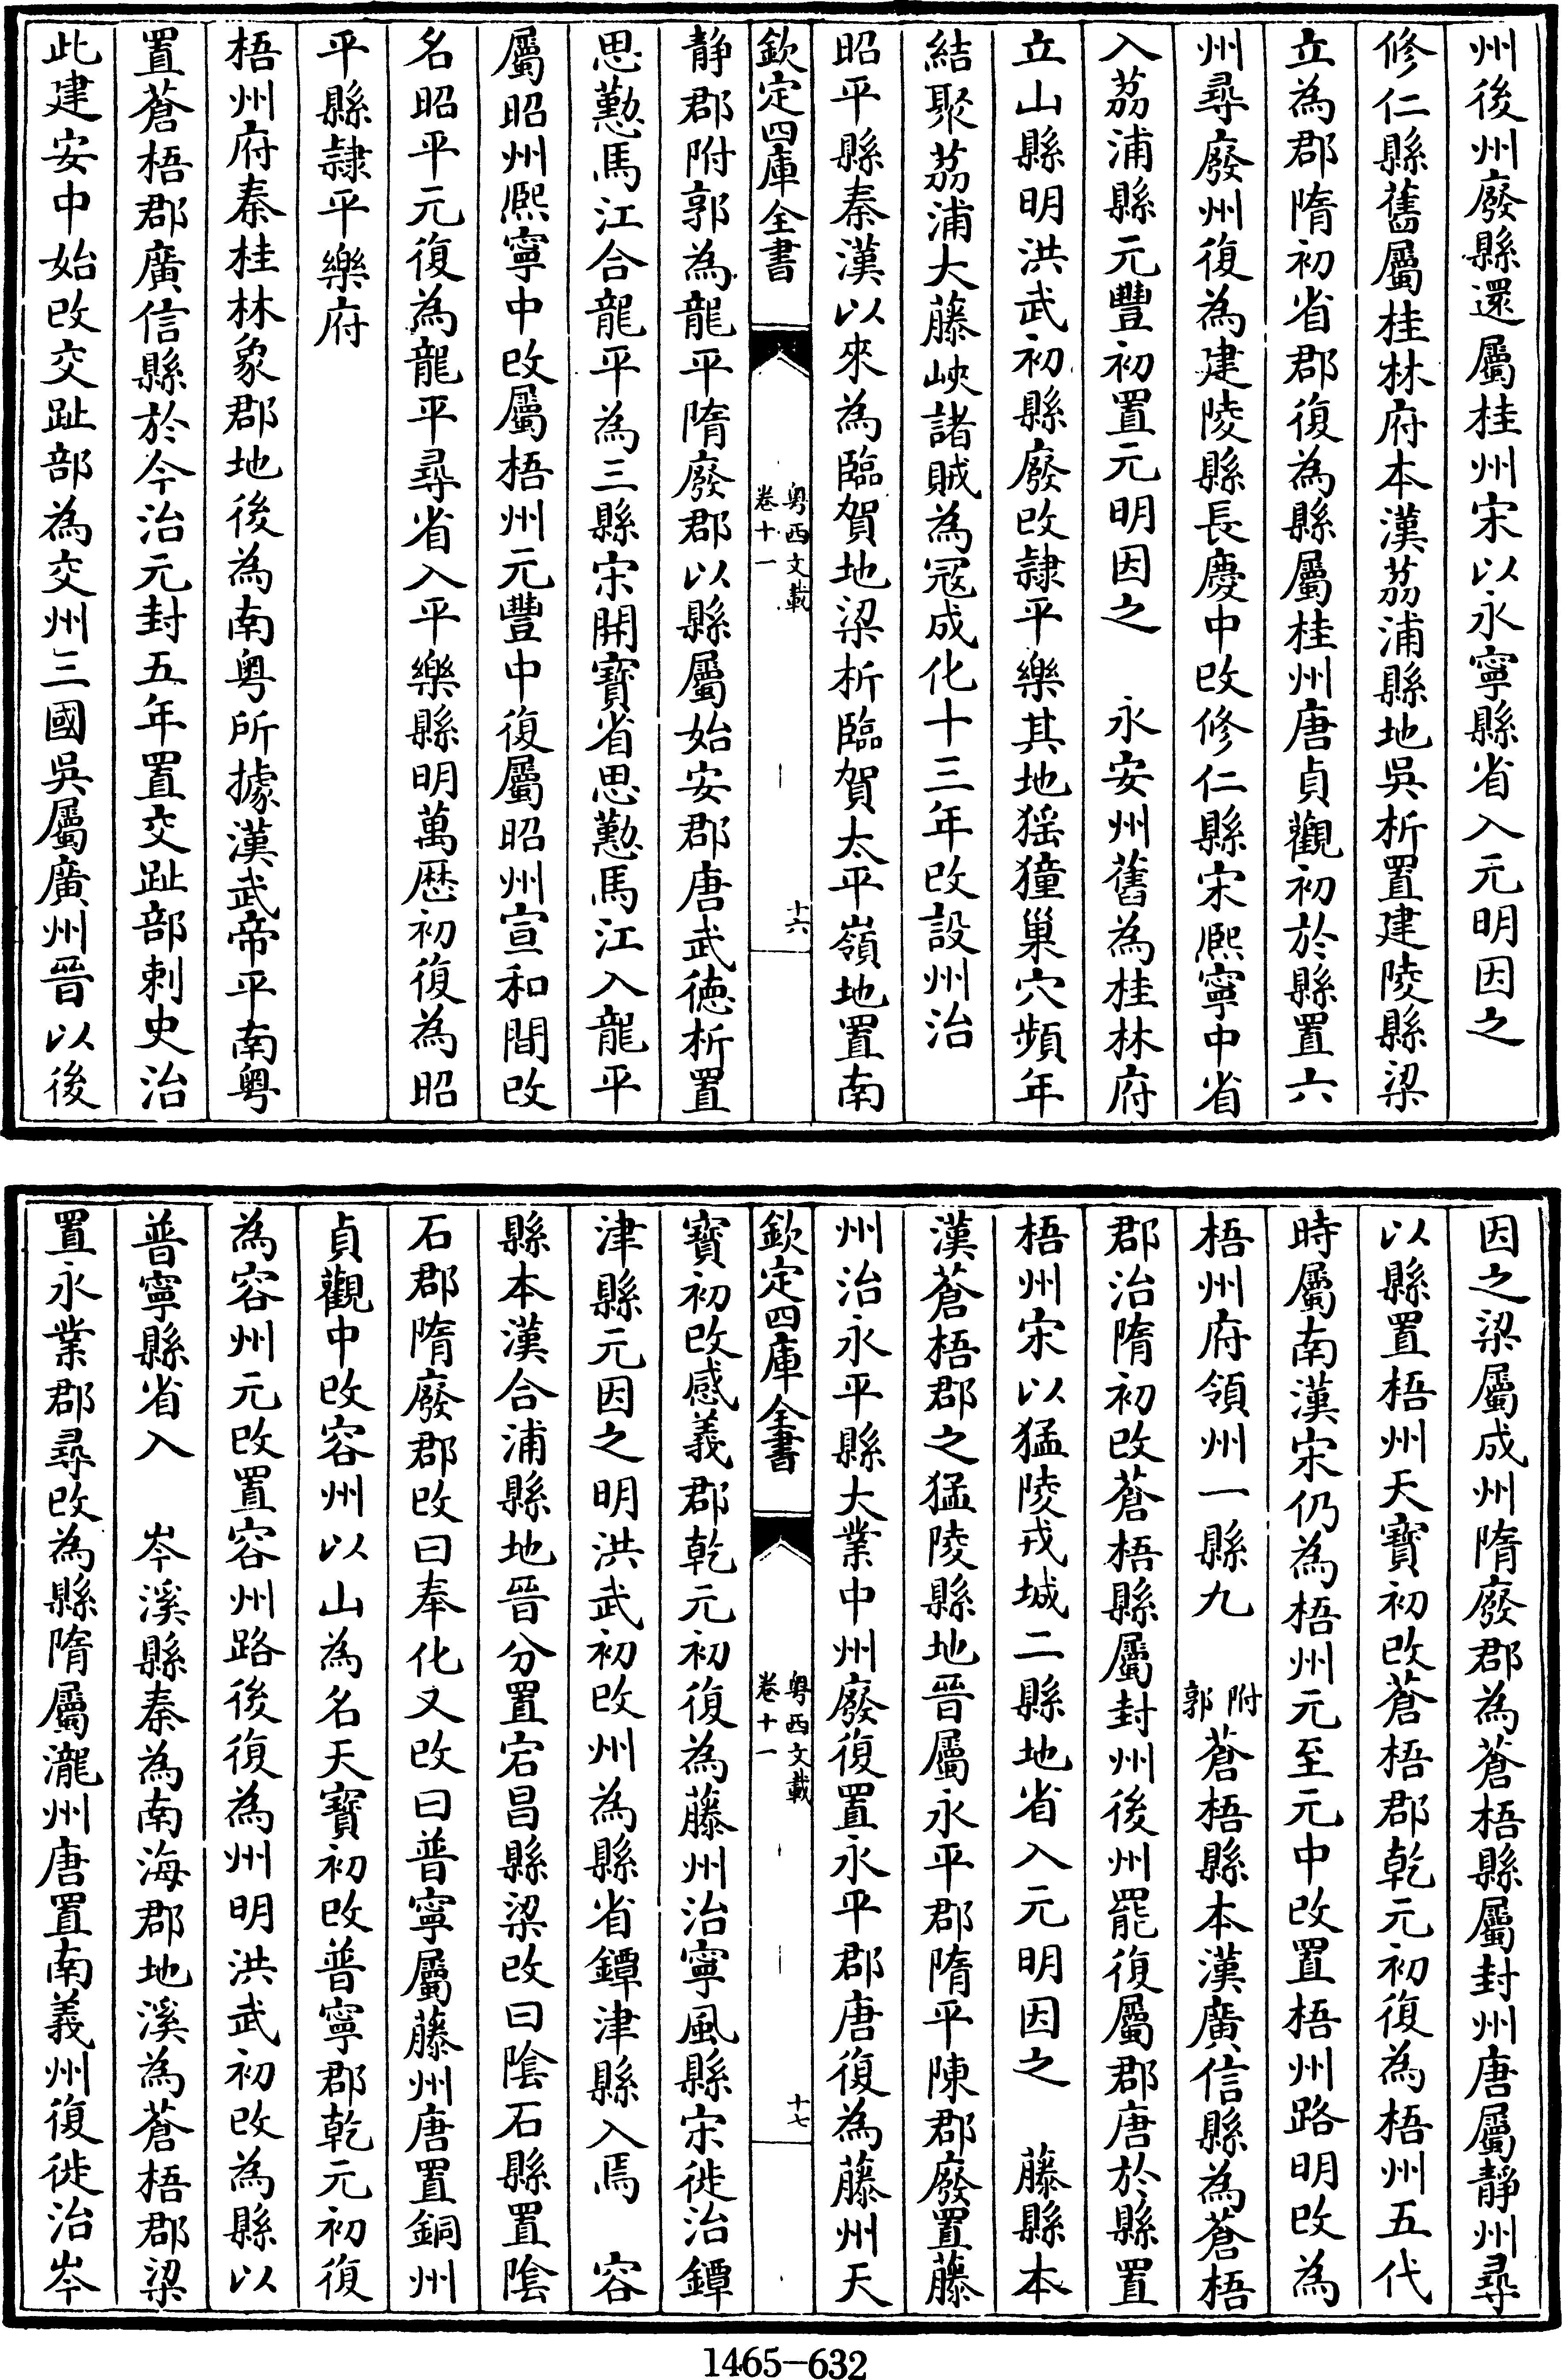 州後州廢縣還屬桂州宋以永寧縣省入元明因之
修仁縣舊屬桂林府本漢荔浦縣地吳析置建陵縣梁
立為郡隋初省郡復為縣屬桂州唐貞觀初於縣置六
州尋廢州復為建陵縣長慶中改修仁縣宋熙寧中省
入荔浦縣元豐初置元明因之　永安州舊為桂林府
立山縣明洪武初縣廢改隸平樂其地猺獞巢穴頻年
結聚荔浦大藤峽諸賊為冦成化十三年改設州治
昭平縣秦漢以來為臨賀地梁析臨賀太平嶺地置南
欽定四庫全書
粤西文載
卷十一
十六
靜郡附郭為龍平隋廢郡以縣屬始安郡唐武德析置
思懃馬江合龍平為三縣宋開寳省思懃馬江入龍平
屬昭州熈寧中改屬梧州元豐中復屬昭州宣和間改
名昭平元復為龍平尋省入平樂縣明萬厯初復為昭
平縣隸平樂府
梧州府秦桂林象郡地後為南粤所據漢武帝平南粤
置蒼梧郡廣信縣於今治元封五年置交趾部刺史治
此建安中始改交趾部為交州三國吳屬廣州晉以後
因之梁屬成州隋廢郡為蒼梧縣屬封州唐屬靜州尋
以縣置梧州天寳初改蒼梧郡乾元初復為梧州五代
時屬南漢宋仍為梧州元至元中改置梧州路明改為
梧州府領州一縣九　附郭蒼梧縣本漢廣信縣為蒼梧
郡治隋初改蒼梧縣屬封州後州罷復屬郡唐於縣置
梧州宋以猛陵戎城二縣地省入元明因之　藤縣本
漢蒼梧郡之猛陵縣地晉屬永平郡隋平陳郡廢置藤
州治永平縣大業中州廢復置永平郡唐復為藤州天
欽定四庫全書
粤西文載
卷十一
十七
寳初改感義郡乾元初復為藤州治寧風縣宋徙治鐔
津縣元因之明洪武初改州為縣省鐔津縣入焉　容
縣本漢合浦縣地晉分置宕昌縣梁改曰陰石縣置陰
石郡隋廢郡改曰奉化又改曰普寧屬藤州唐置銅州
貞觀中改容州以山為名天寳初改普寧郡乾元初復
為容州元改置容州路後復為州明洪武初改為縣以
普寧縣省入　岑溪縣秦為南海郡地溪為蒼梧郡梁
置永業郡尋改為縣隋屬瀧州唐置南義州復徙治岑
1465-632